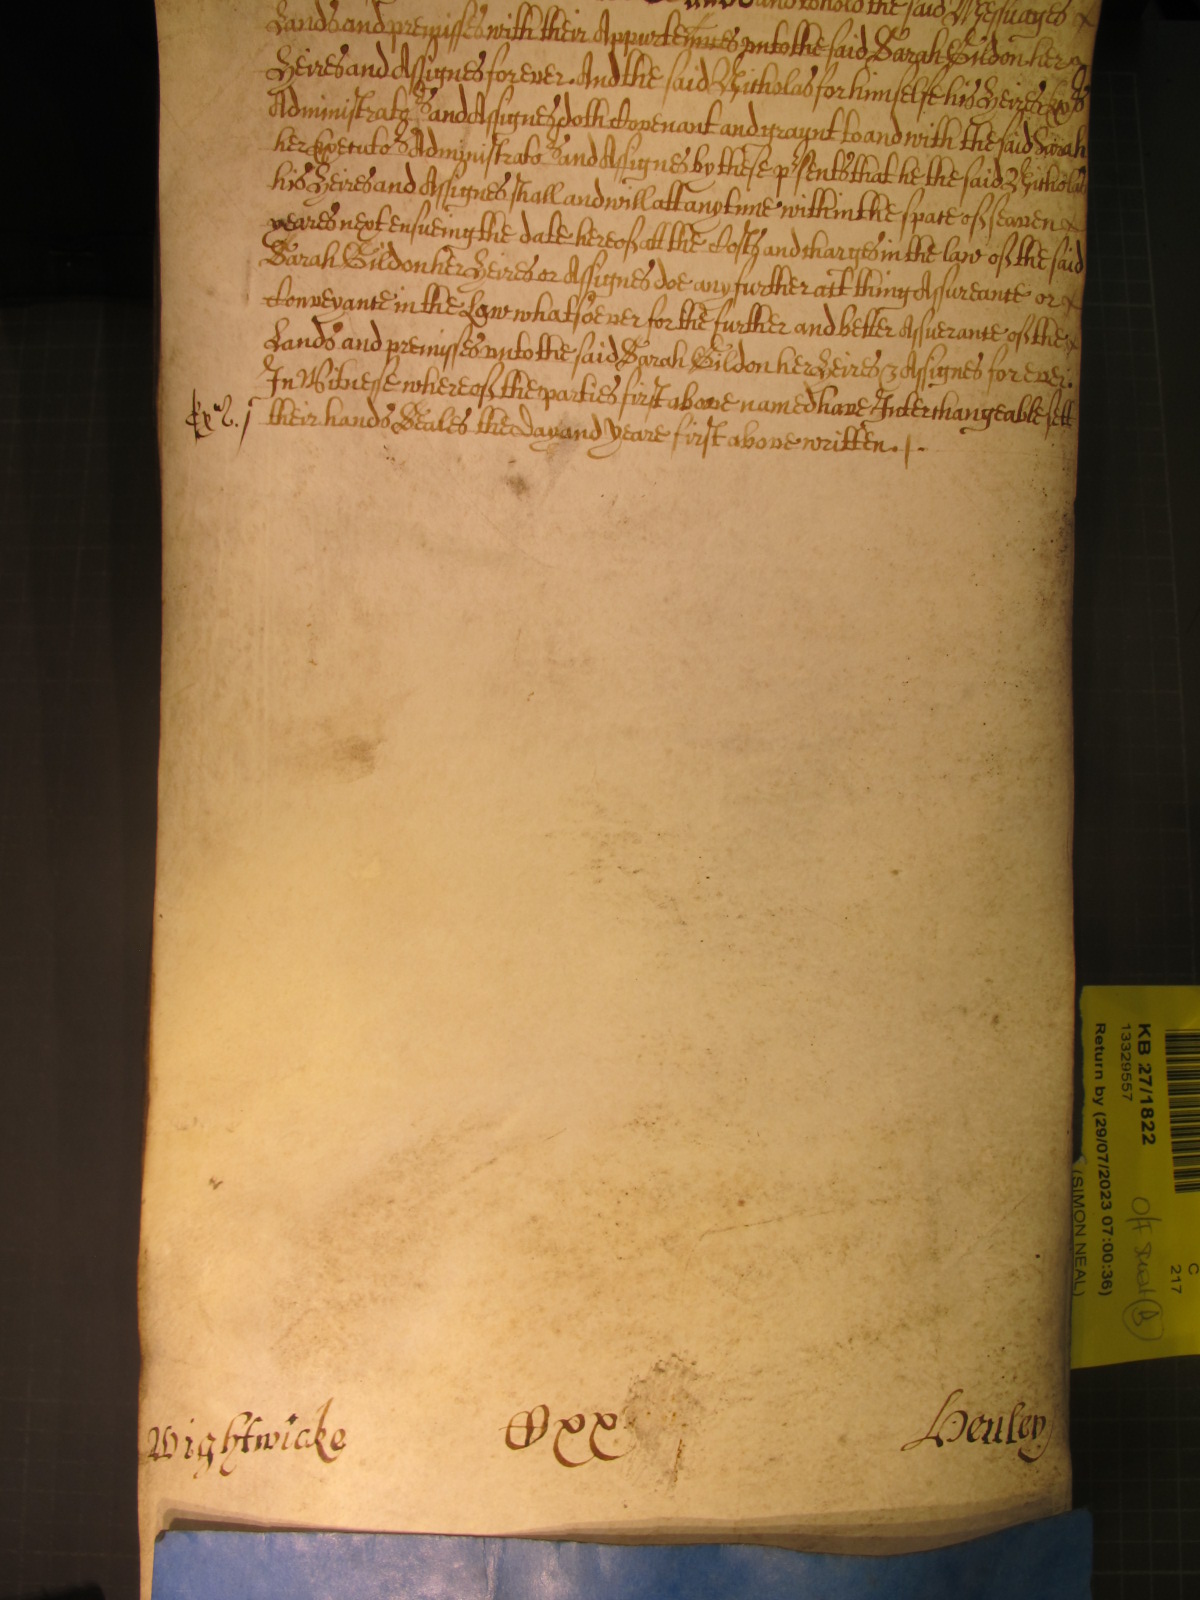 and to hold the said Messuages &
Lands and premisses with their Appurtennces unto the said Sarah Gildon her
Heires and Assignes for ever. And the said Nicholas for himselfe his Heires
Administrators and Assignes doth Covenant and graunt to and with the said Sarah
her Executors Administrators and Assignes by these psents that he the said Nicholas
his Heires and Assignes shall and will att any tyme within the space of seaven
yeares next ensueing the date hereof att the Costs and charges in the law of the said
Sarah Gildon her Heires or Assignes doe any further act thing Assureance or
Conveyance in the Law whatsoever for the further and better Assurance of the
Lands and premisses unto the said Sarah Gildon her Heires & Assignes for ever.
In Witnesse whereof the parties first above named have Interchangeable sett
their hands Seales the Day and Yeare first above written.
Wightwicke
Oxx
Henley
KB 27/1822
13329557
Return by (29/07/2023 07:00:36)
(SIMON NEAL)
C
217